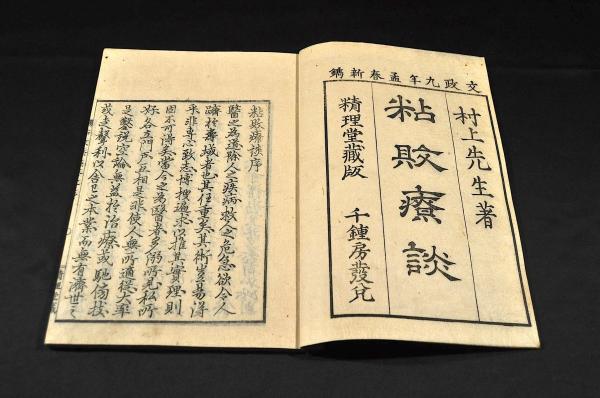 文政九年孟春新鐫
村上先生著
粘敗療談
精理堂藏版 千鍾房發兌
粘敗療談序
醫之為道除人之疾病救人之危急欲令人
躋於壽域者也其任重矣其術豈易得
乎非專心致志博搜遍求以推其實理則
固不可得矣當今之為醫者多溺所見私所
好各立門戶互相是非使人無所適從大率
是鑿説空論無益於治療或馳技
或走聲利以舍己之本業而無有濟世之